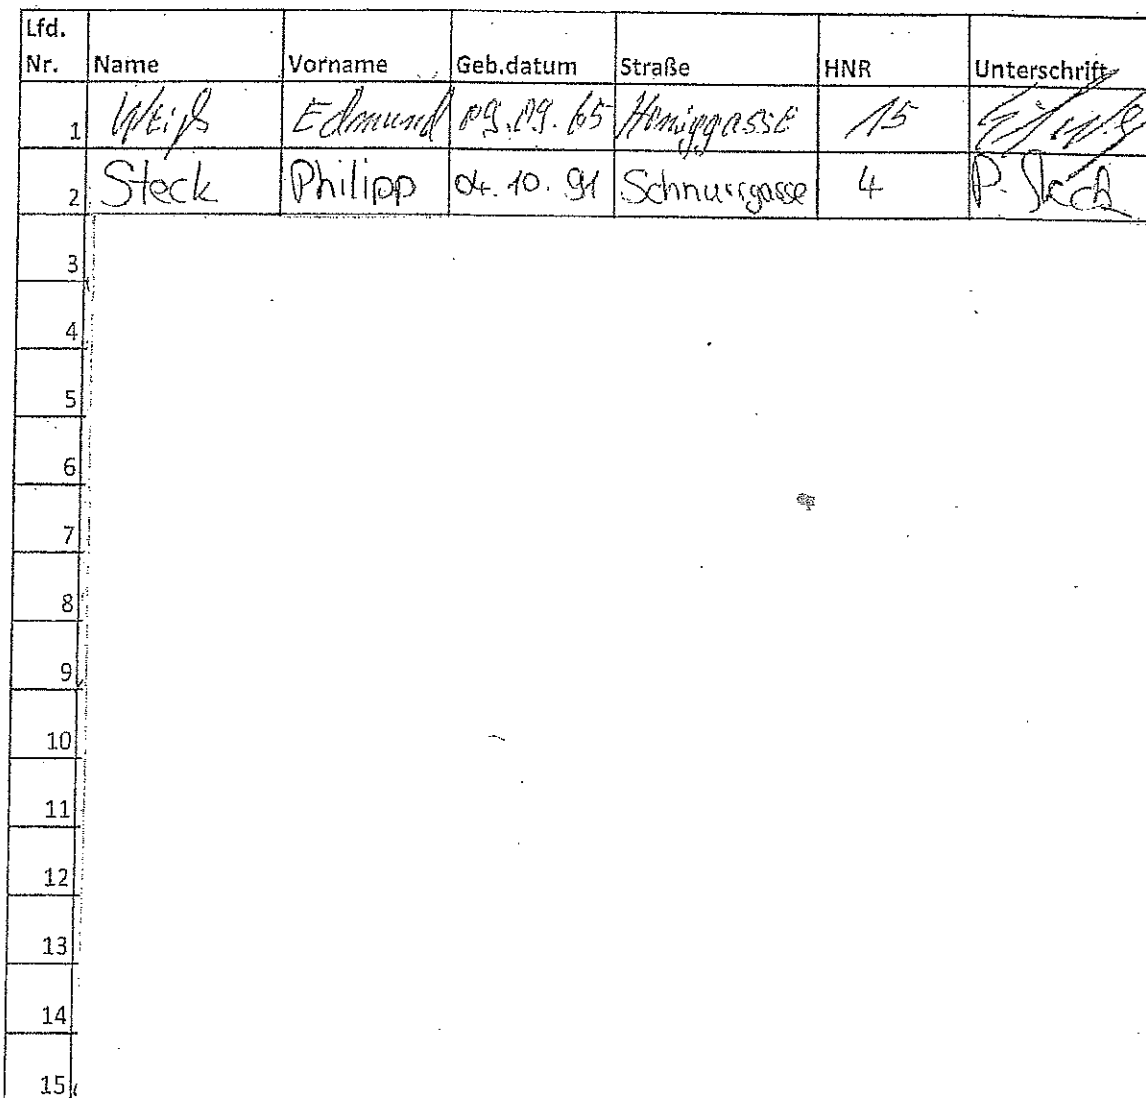 Lfd.
Nr. Name Vorname Geb.datum Straße HNR Unterschrift
1 Weiß Edmund 09.09.65 Honiggasse 15
2 Steck Philipp 04.10.91 Schnurrgasse 4 P. Steck
3
4
5
6
7
8
9
10
11
12
13
14
15